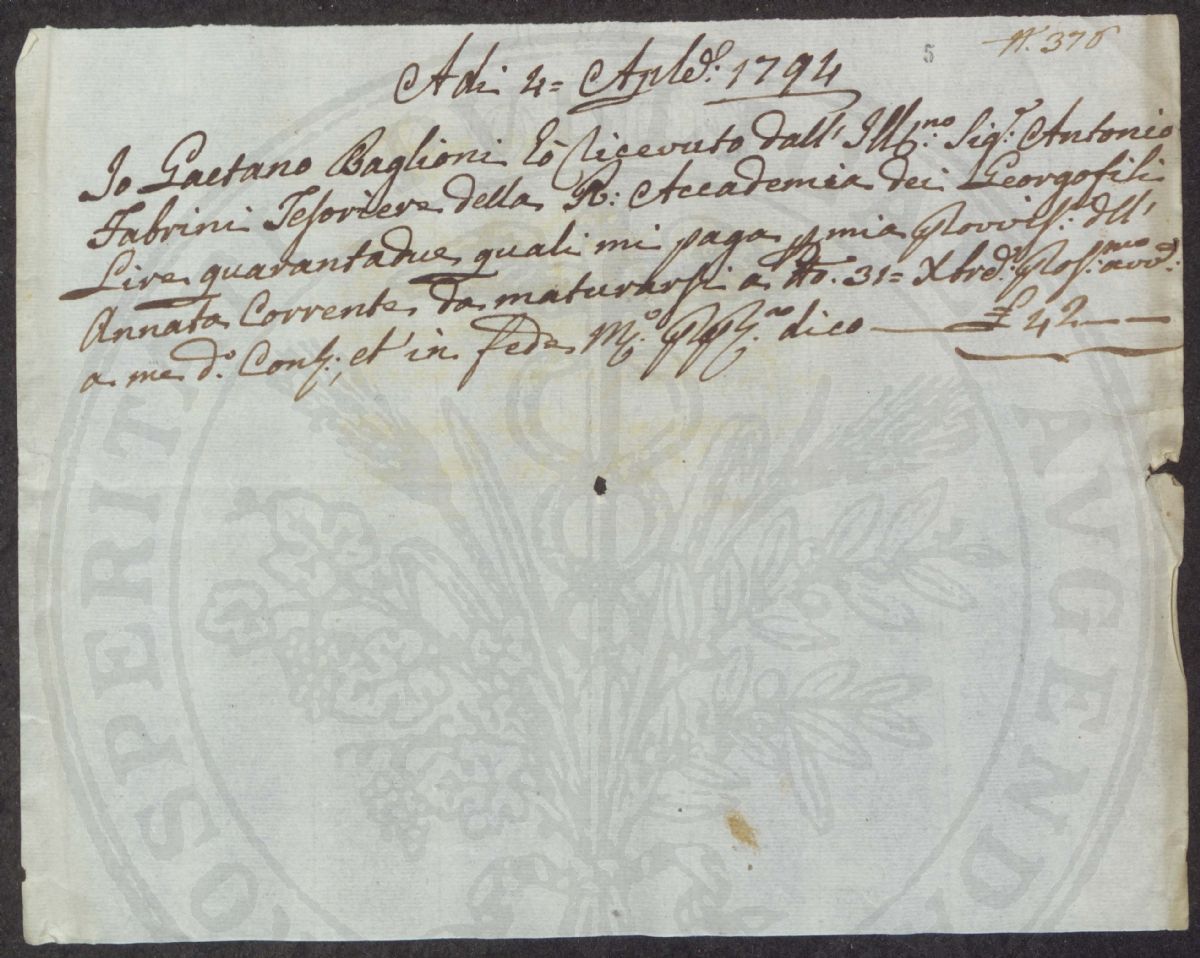 5
N. 378
Adi 4= Aple. 1794
Io Gaetano Baglioni ò ricevuto dall' Illmo. Sigr. Antonio
Fabrini Tesoriere della R: Accademia dei Georgofili
Lire quarantadue quali mi paga p mia Provvis. dell'
Annata Corrente da maturarsi a tto. 31= Xbre
a me do. Cons., et in fede Mo. ppa. dico £ 42
PROSPERITATI AVGENDAE